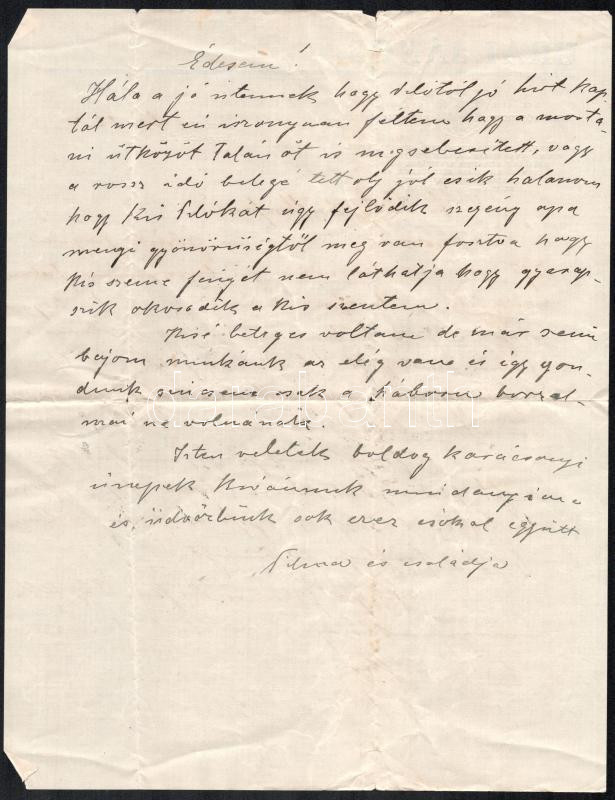 Édesem!
Hála a jó istennek hogy Ilótól jó hirt kap
tál mert én iszonyuan féltem hogy a mosta
ni ütközöt Talán őt is megsebesitett, vagy
a rossz idő beteggé tett oly jól esik halanom
hogy Kis Ilókát úgy fejlődik szegény apa
menyi gyönörüségtöl meg van fosztva hogy
Kis szeme fényét nem láthatja hogy gyarap-
szik okosodik a kis szentem.
Kisé beteges voltam de már semi
bajom munkánk az elég van és igy gon-
dunk sincsen csak a háboru borzal-
mai ne volnának.
Isten veletek boldog karácsonyi
ünepek Kivánunk mindanyian
és üdvözlünk sok ezer csókal együtt
és családja
darabanth